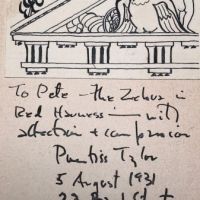 To Pete — the Zebra in
Red Harness — with
affection + compassion
Prentiss Taylor
5 August 1931
23 Bank St